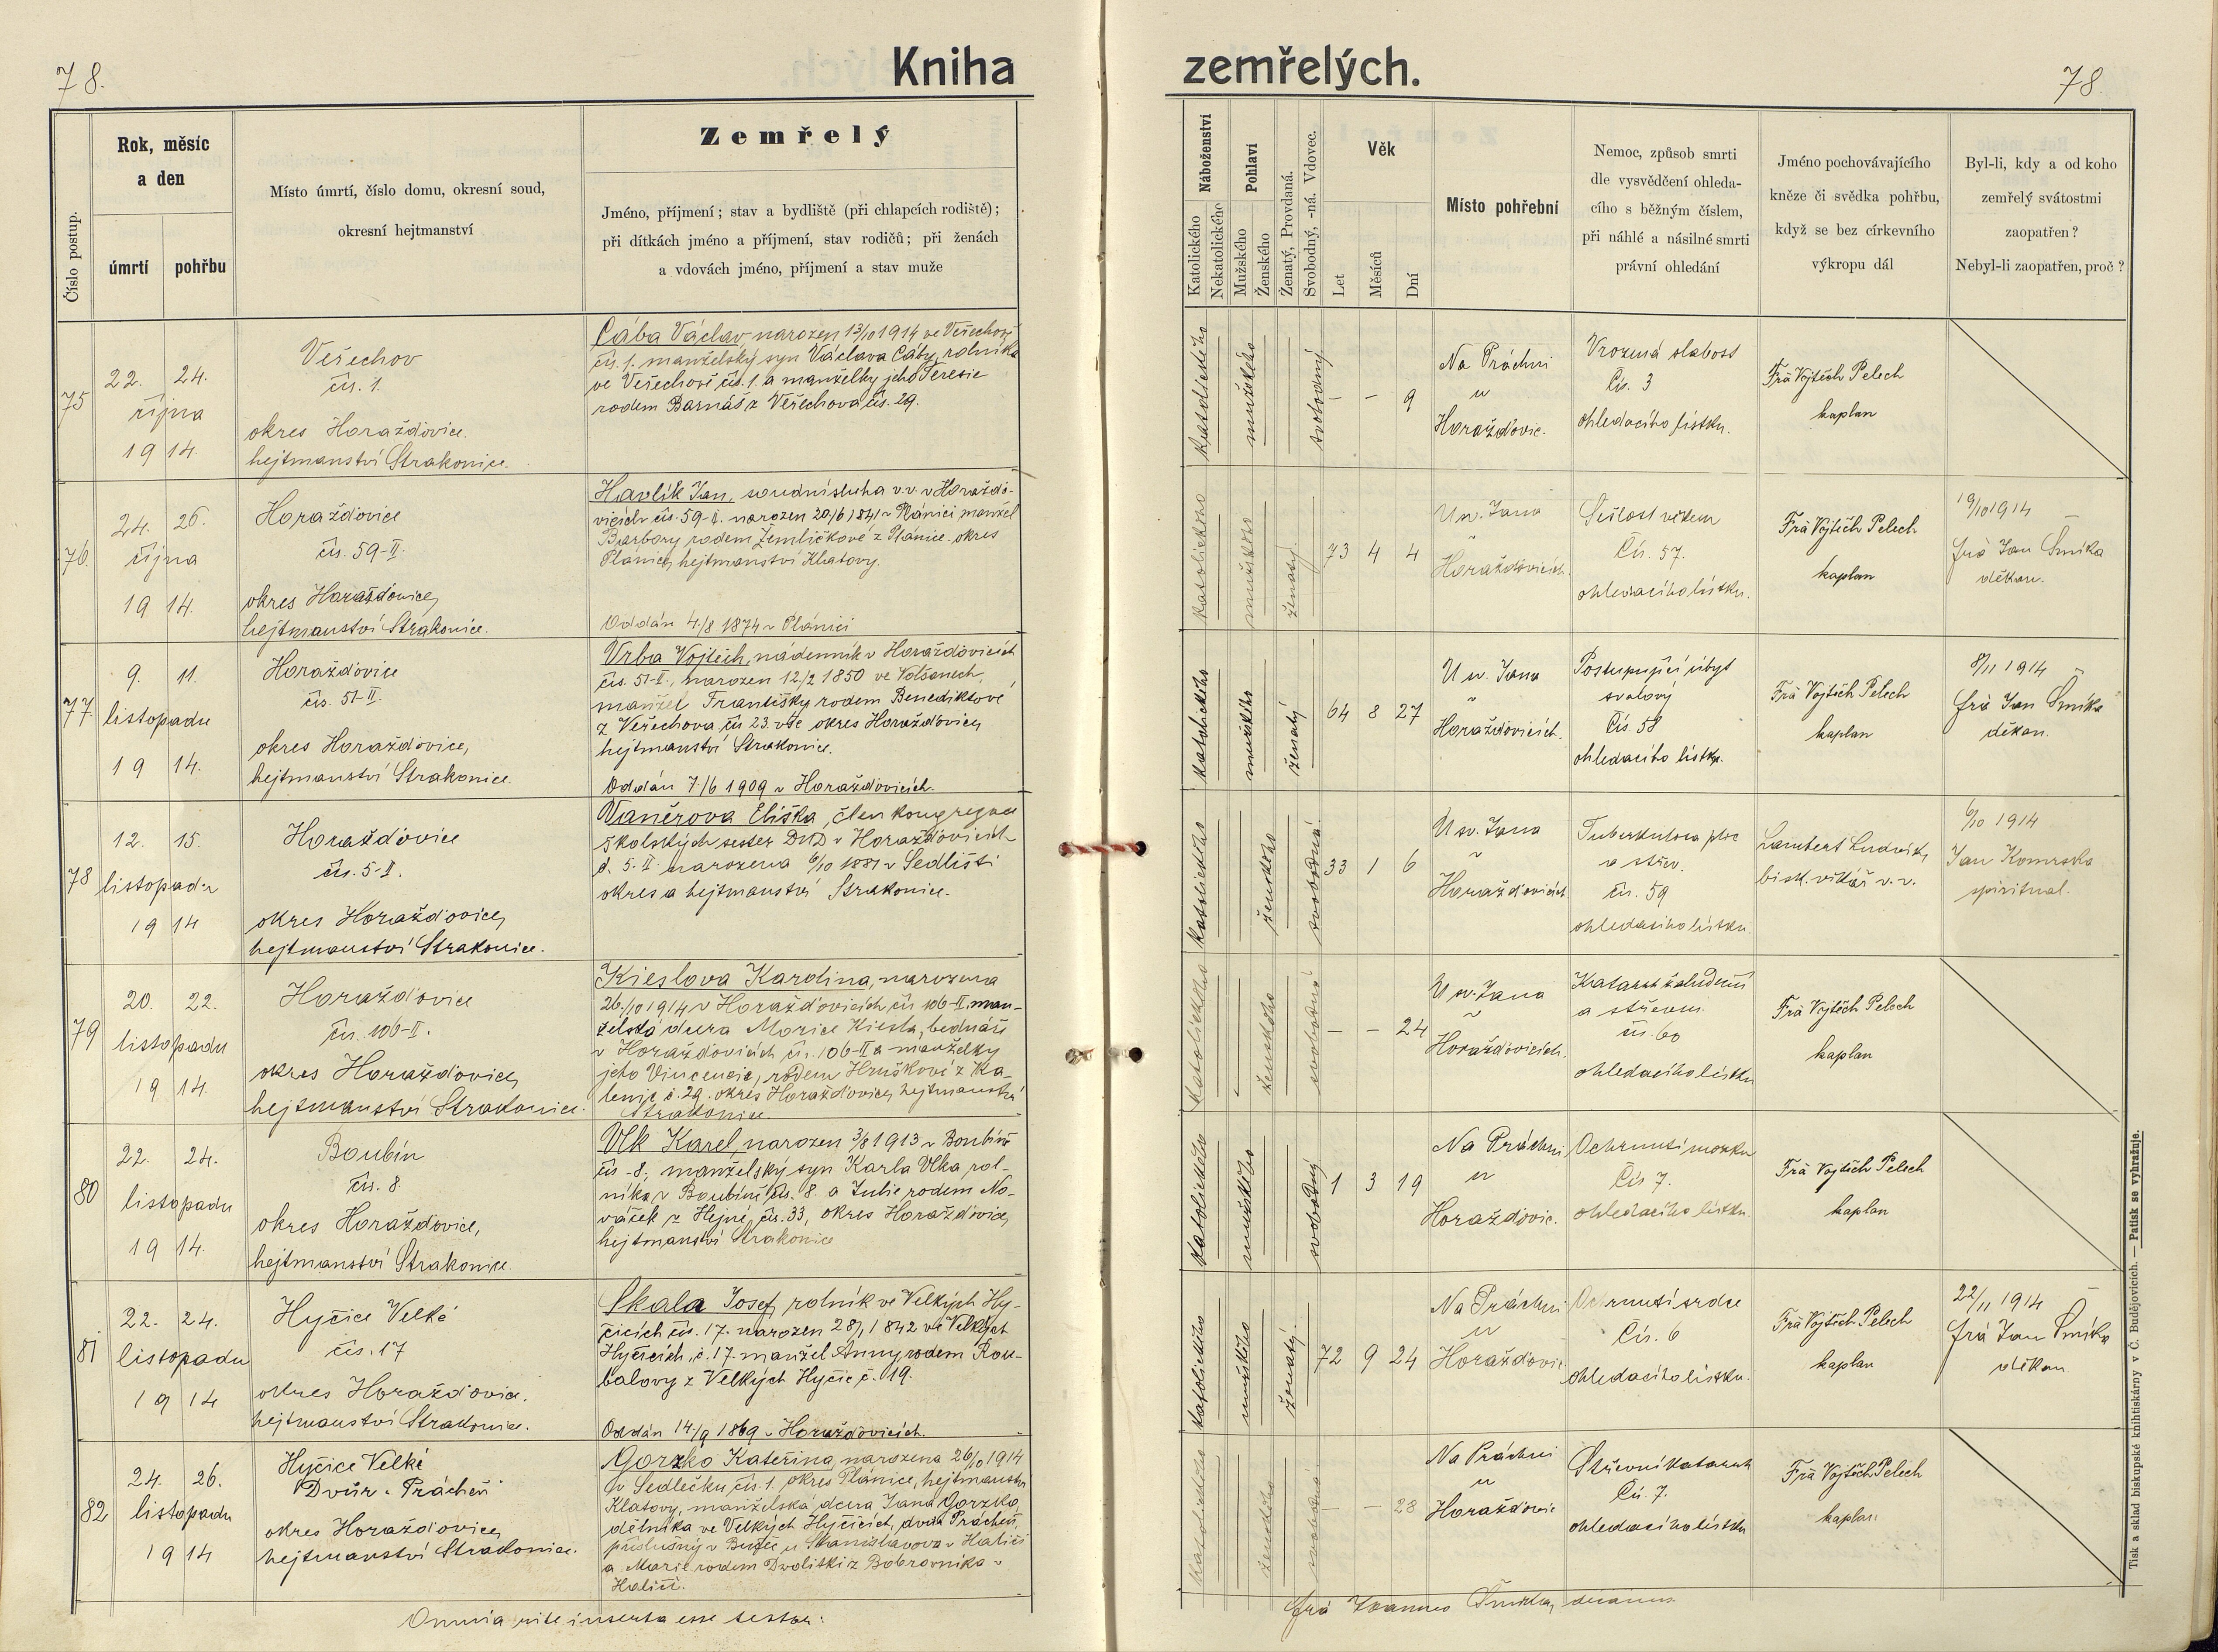 78.
Kniha
zemřelých.
78.
Číslo postup.
Rok, měsíc
a den
úmrtí
pohřbu
Místo úmrtí, číslo domu, okresní soud,
okresní hejtmanství
Zemřelý
Jméno, příjmení; stav a bydliště (při chlapcích rodiště);
při dítkách jméno a příjmení, stav rodičů; při ženách
a vdovách jméno, příjmení a stav muže
Náboženství
Katolického
Nekatolického
Pohlaví
Mužského
Ženského
Ženatý, Provdaná.
Svobodný, -ná. Vdovec.
Věk
Let
Měsíců
Dní
Místo pohřební
Nemoc, způsob smrti
dle vysvědčení ohleda-
cího s běžným číslem,
při náhlé a násilné smrti
právní ohledání
Jméno pochovávajícího
kněze či svědka pohřbu,
když se bez církevního
výkropu dál
Byl-li, kdy a od koho
zemřelý svátostmi
zaopatřen?
Nebyl-li zaopatřen, proč?
75
22. 24.
října
19 14.
Veřechov
čís. 1.
okres Horažďovice.
hejtmanství Strakonice.
Cába Václav, narozen 13/10 1914 ve Veřechově
čís. 1. manželský syn Václava Cáby, rolníka
ve Veřechově čís. 1. a manželky jeho Teresie
rodem Barnáš z Veřechova čís. 29.
katolického
mužského
svobodný
– – 9
Na Práchni
u
Horažďovic.
Vrozená slabost
Čís. 3
ohledacího lístku.
Frá Vojtěch Pelech
kaplan
76.
24. 26.
října
19 14.
Horažďovice
čís. 59-II.
okres Horažďovice,
hejtmanství Strakonice.
Havlík Jan, soudní sluha v.v. v Horažďo-
vicích čís. 59-II. narozen 20/6 1841 v Plánici manžel
Barbory rodem Žemličkové z Plánice. okres
Plánice, hejtmanství Klatovy.
Oddán 4./8 1874 v Plánici
katolického
mužského
ženatý.
73 4 4
U sv. Jana
v
Horažďovicích.
Sešlost věkem
Čís. 57.
ohledacího lístku.
Frá Vojtěch Pelech
kaplan
19/10 1914
frá Jan Šmíka
děkan.
77.
9. 11.
listopadu
19 14.
Horažďovice
čís. 51-II.
okres Horažďovice,
hejtmanství Strakonice.
Vrba Vojtěch, nádenník v Horažďovicích
čís. 51-II., narozen 12/2 1850 ve Volšanech,
manžel Františky rodem Benediktové
z Veřechova čís 23. vše okres Horažďovice,
hejtmanství Strakonice.
Oddán 7/6 1909 v Horažďovicích.
katolického
mužského
ženatý
64 8 27
U sv. Jana
v
Horažďovicích.
Postupující úbyt
svalový
Čís 58
ohledacího lístku.
Frá Vojtěch Pelech
kaplan
8/11 1914
frá Jan Šmíka
děkan.
78
12. 15.
listopadu
19 14
Horažďovice
čís. 5-II.
okres Horažďovice,
hejtmanství Strakonice.
Vaněrova Eliška, člen kongregace
školských sester DND v Horažďovicích
č. 5-II narozena 6/10 1881 v Sedlišti
okres a hejtmanství Strakonice.
katolického
ženského
svobodná.
33 1 6
U sv. Jana
v
Horažďovicích
Tuberkulosa plic
a střev.
čís. 59
ohledacího lístku.
Lambert Ludvík,
bisk. vikář v. v.
6/10 1914
Jan Komrska
spirituál.
79
20. 22.
listopadu
19 14.
Horažďovice
čís. 106-II.
okres Horažďovice,
hejtmanství Strakonice.
Kieslova Karolina, narozena
26./10 1914 v Horažďovicích čís 106-II, man-
želská dcera Morice Kiesla, bednáře
v Horažďovicích čís. 106-II a manželky
jeho Vincencie, rodem Hruškové z Ka-
lenic č. 29. okres Horažďovice, hejtmanství
Strakonice.
katolického
ženského
svobodná
– – 24
U sv. Jana
v
Horažďovicích.
Katarrh žaludeční
a střevní.
čís. 60
ohledacího lístku
Frá Vojtěch Pelech
kaplan
80
22. 24.
listopadu
19 14.
Boubín
čís. 8
okres Horažďovice,
hejtmanství Strakonice.
Vlk Karel, narozen 3/8 1913 v Boubíně
čís - 8., manželský syn Karla Vlka, rol-
níka v Boubíně čís. 8. a Julie rodem No-
váček z Hejné, čís. 33, okres Horažďovice,
hejtmanství Strakonice
katolického
mužského
svobodný
1 3 19
Na Práchni
u
Horažďovic.
Ochrnutí mozku
Čís 7.
ohledacího lístku.
Frá Vojtěch Pelech
kaplan
81
22. 24.
listopadu
19 14
Hyčice Velké
čís. 17
okres Horažďovice.
hejtmanství Strakonice.
Skala Josef, rolník ve Velkých Hy-
čicích čís. 17. narozen 28/1 1842 ve Velkých
Hyčicích, č. 17. manžel Anny rodem Rou-
balovy z Velkých Hyčic č. 19.
Oddán 14/9 1869 v Horažďovicích.
katolického
mužského
ženatý.
72 9 24
Na Práchni
u
Horažďovic
Ochrnutí srdce
Čís. 6
ohledacího lístku.
Frá Vojtěch Pelech
kaplan
22/11 1914
frá Jan Šmíka
děkan
82
24. 26.
listopadu
19 14
Hyčice Velké
Dvůr - Prácheň
okres Horažďovice,
hejtmanství Strakonice.
Gorzko Kateřina, narozena 26/10 1914
v Sedlečku čís. 1. okres Plánice, hejtmanství
Klatovy, manželská dcera Jana Gorzko,
dělníka ve Velkých Hyčicích, dvůr Prácheň,
příslušný v u Stanislavova v Haliči
a Marie rodem Dwolitki z Bobrovníka v
Haliči.
katolického
ženského
svobodná
– – 28
Na Práchni
u
Horažďovic
Střevní katarrh
Čís. 7.
ohledacího lístku
Frá Vojtěch Pelech
kaplan
Omnia rite inserta esse testor:
frá Joannes Šmíka, decanus
Tisk a sklad biskupské knihtiskárny v Č. Budějovicích. — Patisk se vyhražuje.